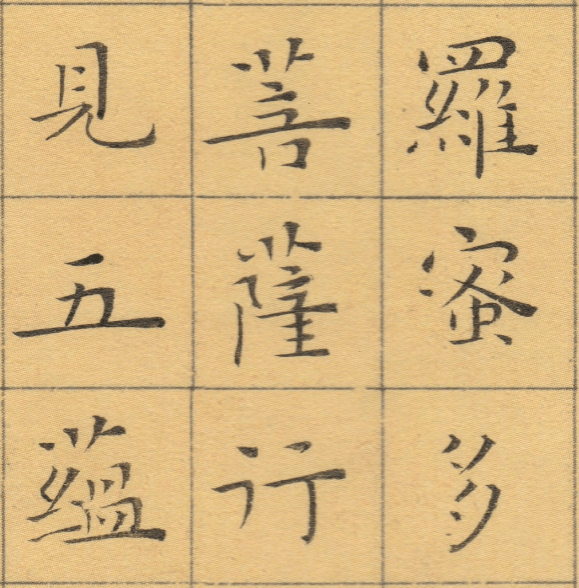 羅蜜多
菩薩行
見五蘊